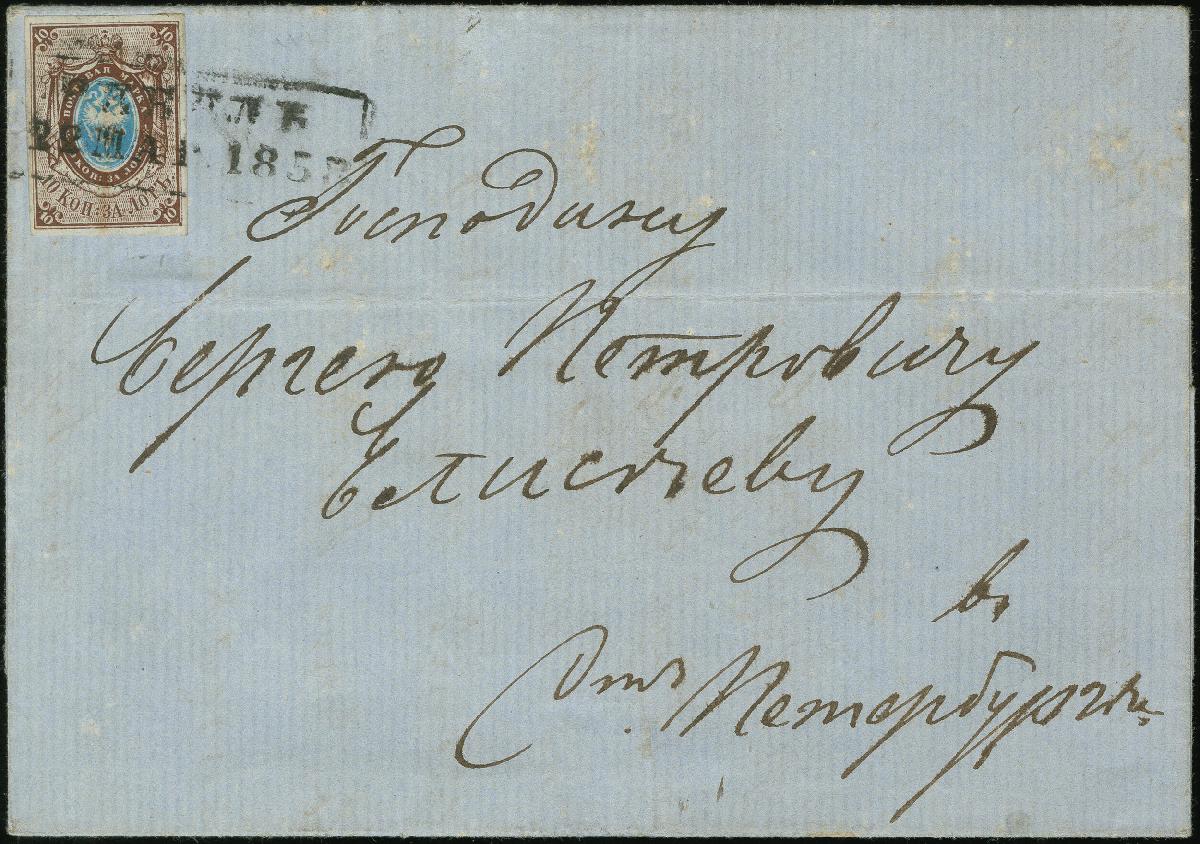 10 10
ПОЧТОВАЯ МАРКА
10 КОП: ЗА ЛОТЪ.
10 КОП: ЗА ЛОТЪ.
10 10
1858
Господину
Сергею Петровичу
Елисѣеву
въ
Петербургѣ